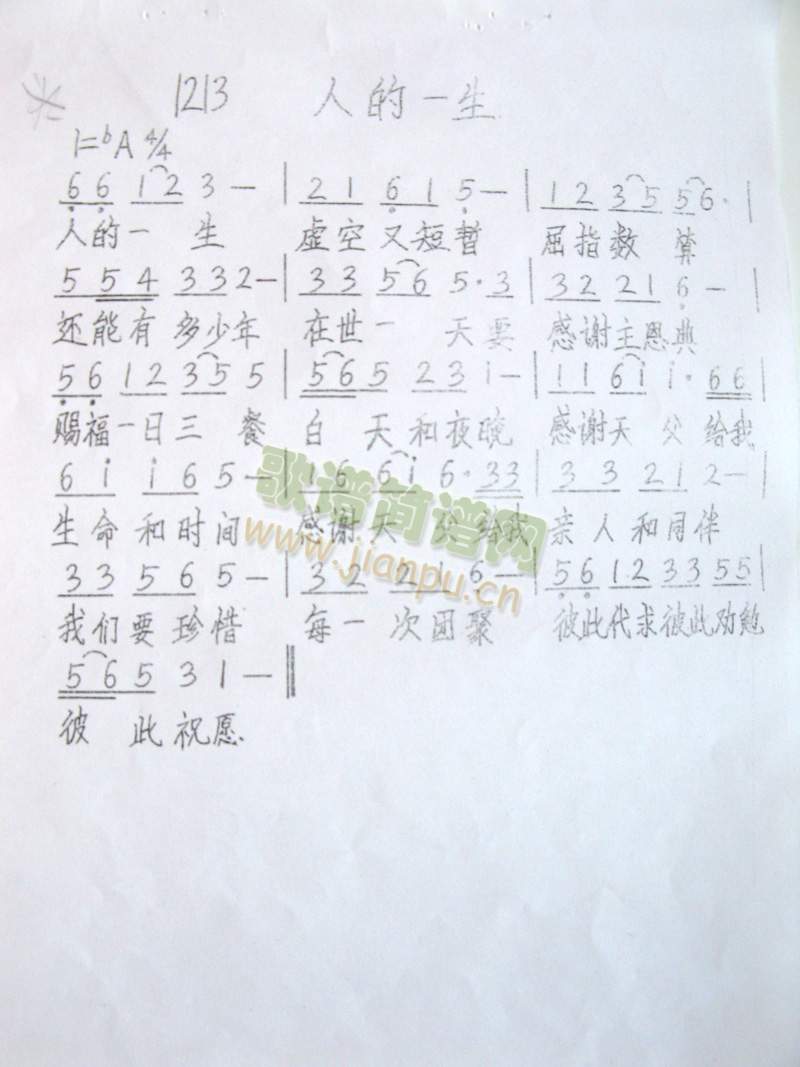 1213 人的一生
1=ᵇA 4/4
6̣ 6̣ 1 2 3 — | 2 1 6̣ 1 5̣ — | 1 2 3 5 5 6 · |
人的一 生 虚空又短暂 屈指数 算
5 5 4 3 3 2 — | 3 3 5 6 5 · 3 | 3 2 2 1 6̣ — |
还能有多少年 在世一 天要 感谢主恩典
5̣ 6̣ 1 2 3 5 5 | 5 6 5 2 3 1 — | 1 1 6 i i · 6 6 |
赐福一日三 餐 白 天和夜晚 感谢天 父给我
6 i i 6 5 — | 1 6 6 i 6 · 3 3 | 3 3 2 1 2 — |
生命和时间 感谢天 父给我 亲人和同伴
3 3 5 6 5 — | 3 2 2 1 6 — | 5̣ 6̣ 1 2 3 3 5 5 |
我们要珍惜 每一次团聚 彼此代求彼此劝勉
5 6 5 3 1 — ‖
彼 此祝愿
歌谱简谱网
www.jianpu.cn